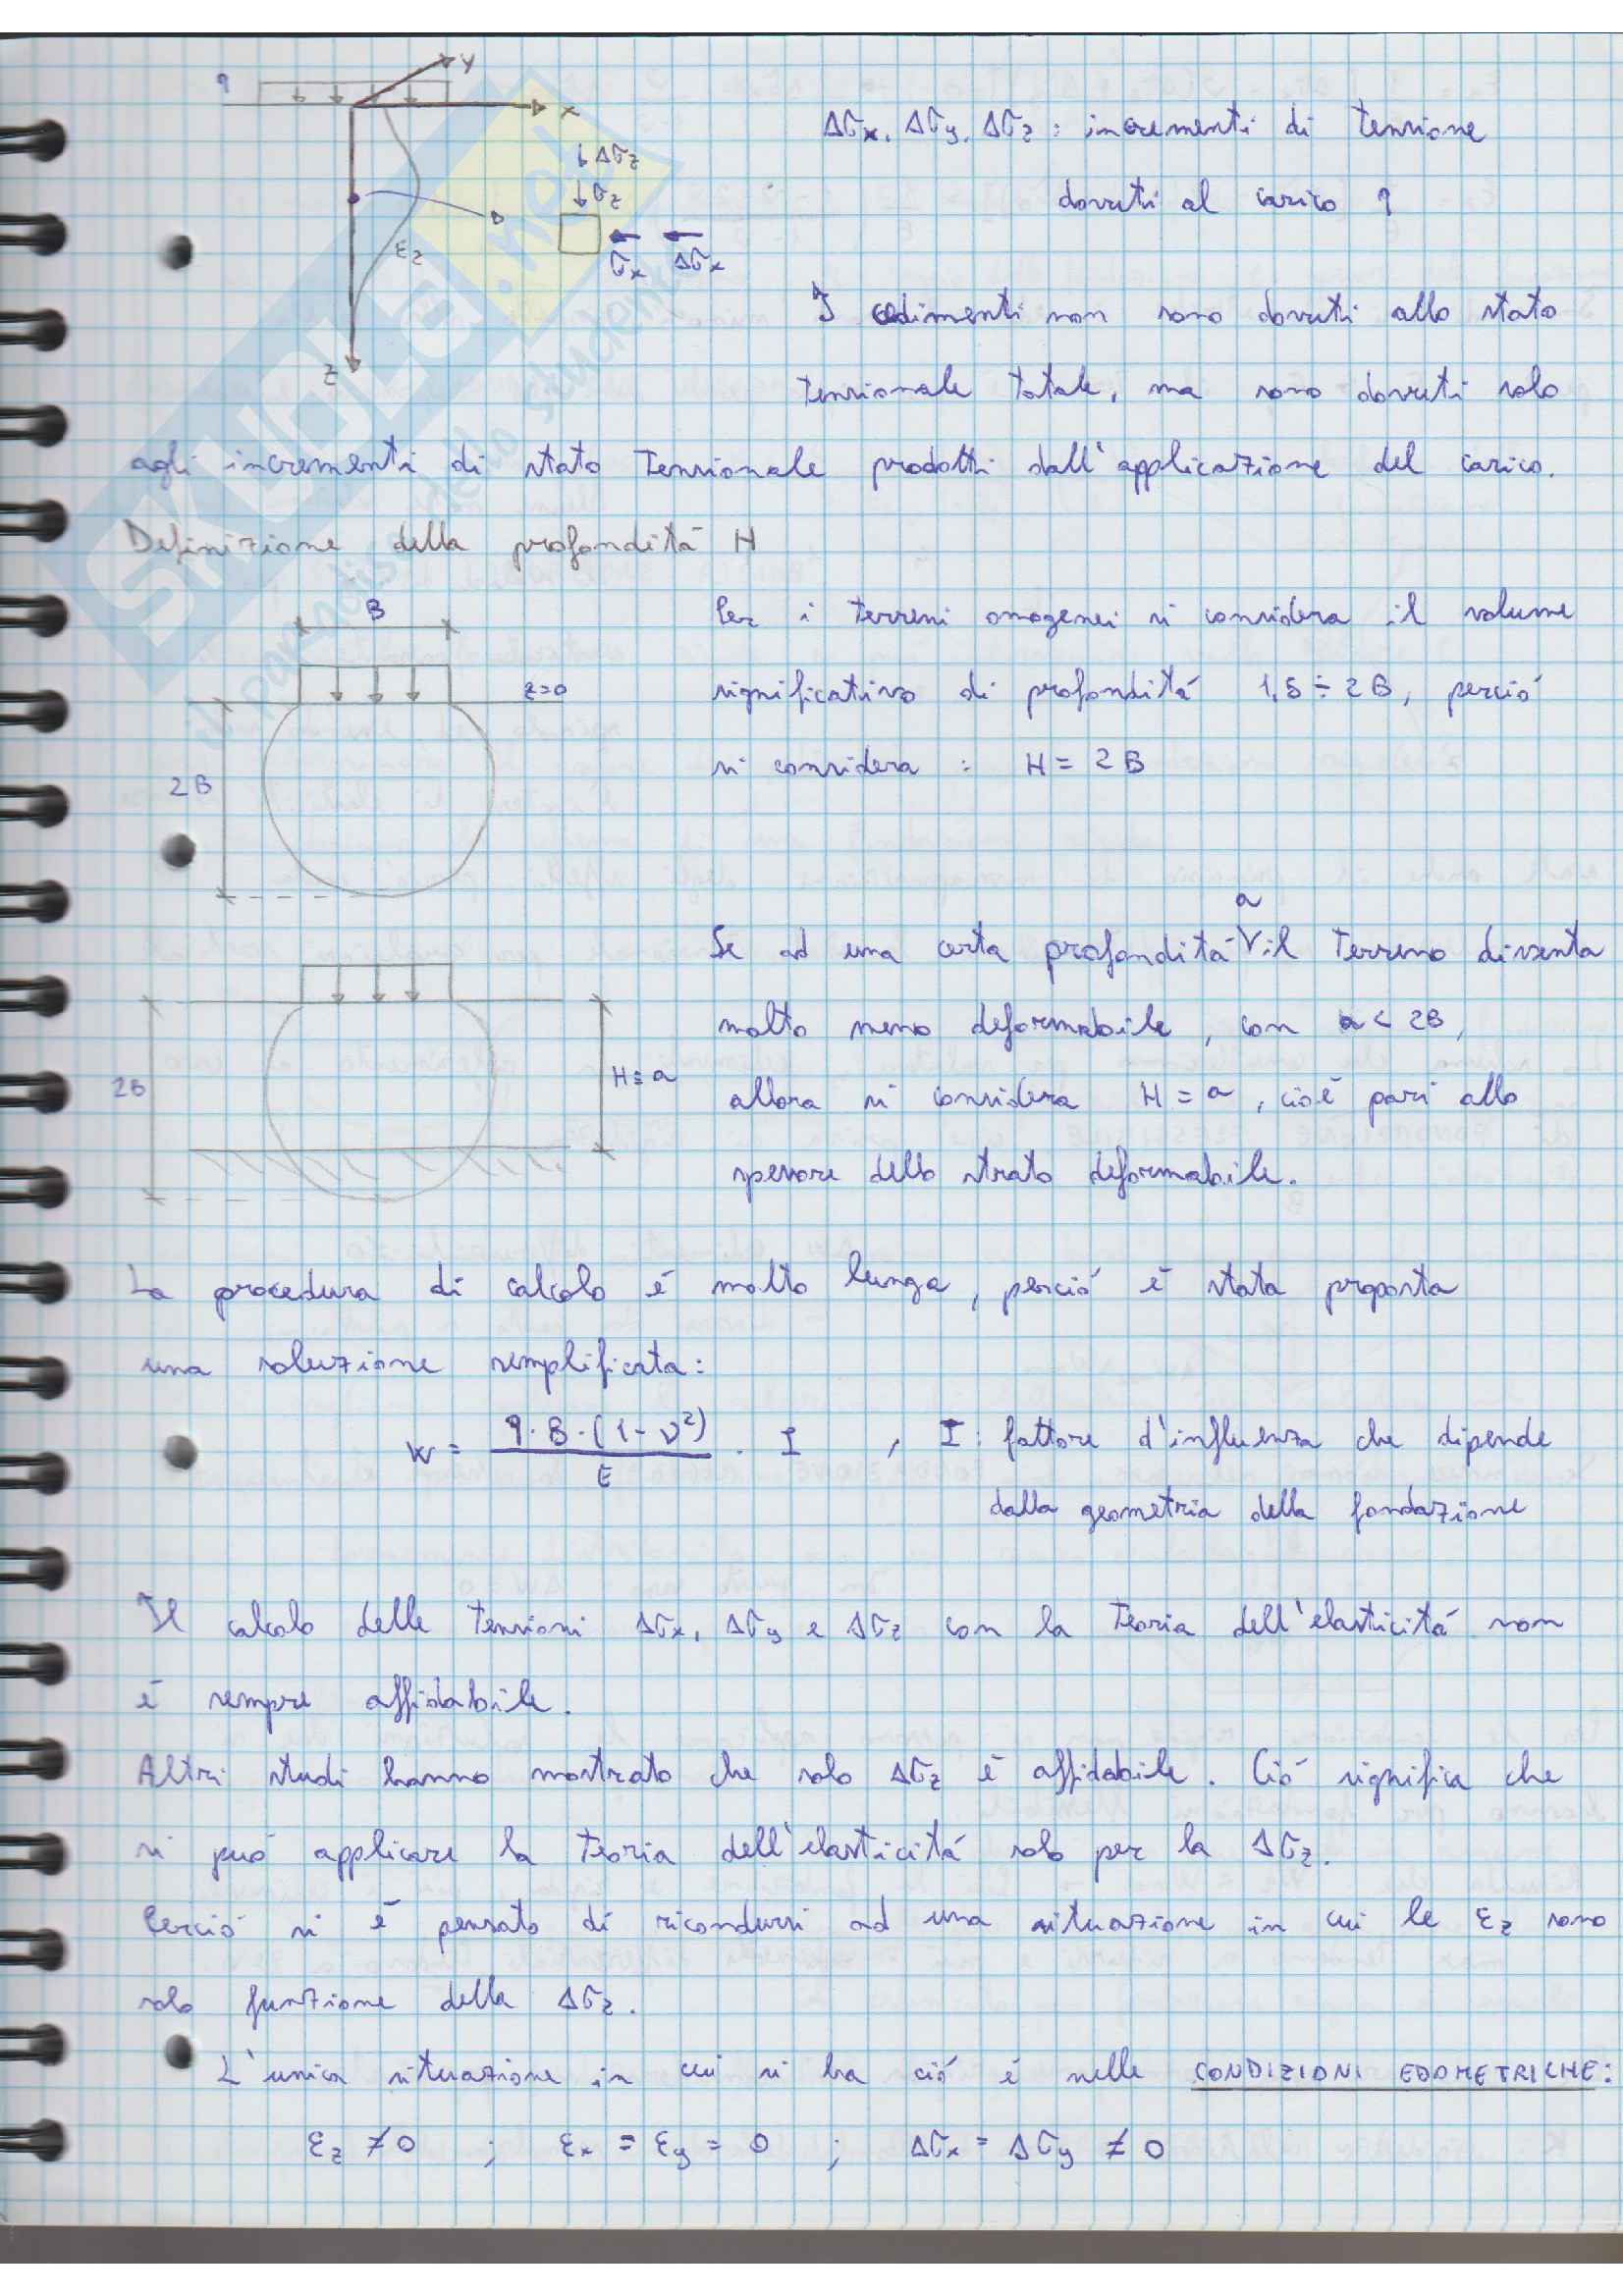 q
y
x
Δσz
σz
σx Δσx
εz
z
Δσx, Δσy, Δσz : incrementi di tensione
dovuti al carico q
I cedimenti non sono dovuti allo stato
tensionale totale, ma sono dovuti solo
agli incrementi di stato tensionale prodotti dall'applicazione del carico.
Definizione della profonditá H
B
z=0
2B
Per i terreni omogenei si considera il volume
significativo di profonditá 1,5 ÷ 2B, perció
si considera : H = 2B
2B
H ≡ a
Se ad una certa profonditá a il terreno diventa
molto meno deformabile, con a < 2B,
allora si considera H = a, cioé pari allo
spessore dello strato deformabile.
La procedura di calcolo é molto lunga, perció é stata proposta
una soluzione semplificata:
w = q·B·(1-ν²)/E · I , I: fattore d'influenza che dipende
dalla geometria della fondazione
Il calcolo delle tensioni Δσx, Δσy e Δσz con la teoria dell'elasticitá non
é sempre affidabile.
Altri studi hanno mostrato che solo Δσz é affidabile. Ció significa che
si puó applicare la teoria dell'elasticitá solo per la Δσz.
Perció si é pensato di ricondursi ad una situazione in cui le εz sono
solo funzione della Δσz.
L'unica situazione in cui si ha ció é nelle CONDIZIONI EDOMETRICHE:
εz ≠ 0 ; εx = εy = 0 ; Δσx = Δσy ≠ 0
SKUOLA.net
il paradiso dello studente